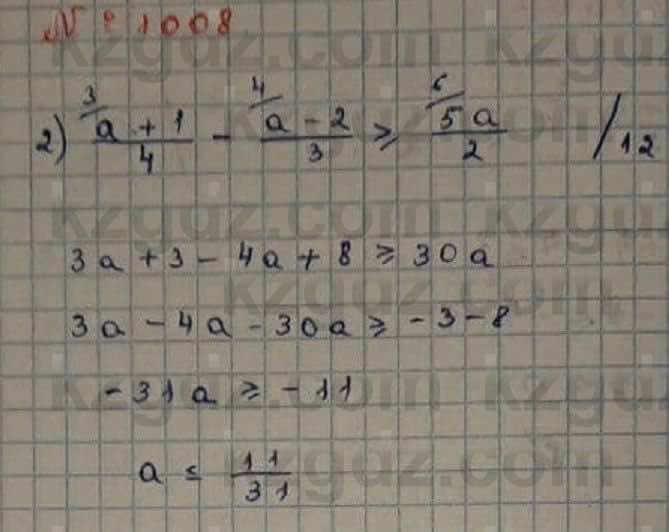 № 1008
2) ³/ a + 1 / 4 - ⁴/ a - 2 / 3 ≥ ⁶/ 5a / 2 / 12
3a + 3 - 4a + 8 ≥ 30a
3a - 4a - 30a ≥ -3 - 8
-31a ≥ -11
a ≤ 11/31
kzgdz.com